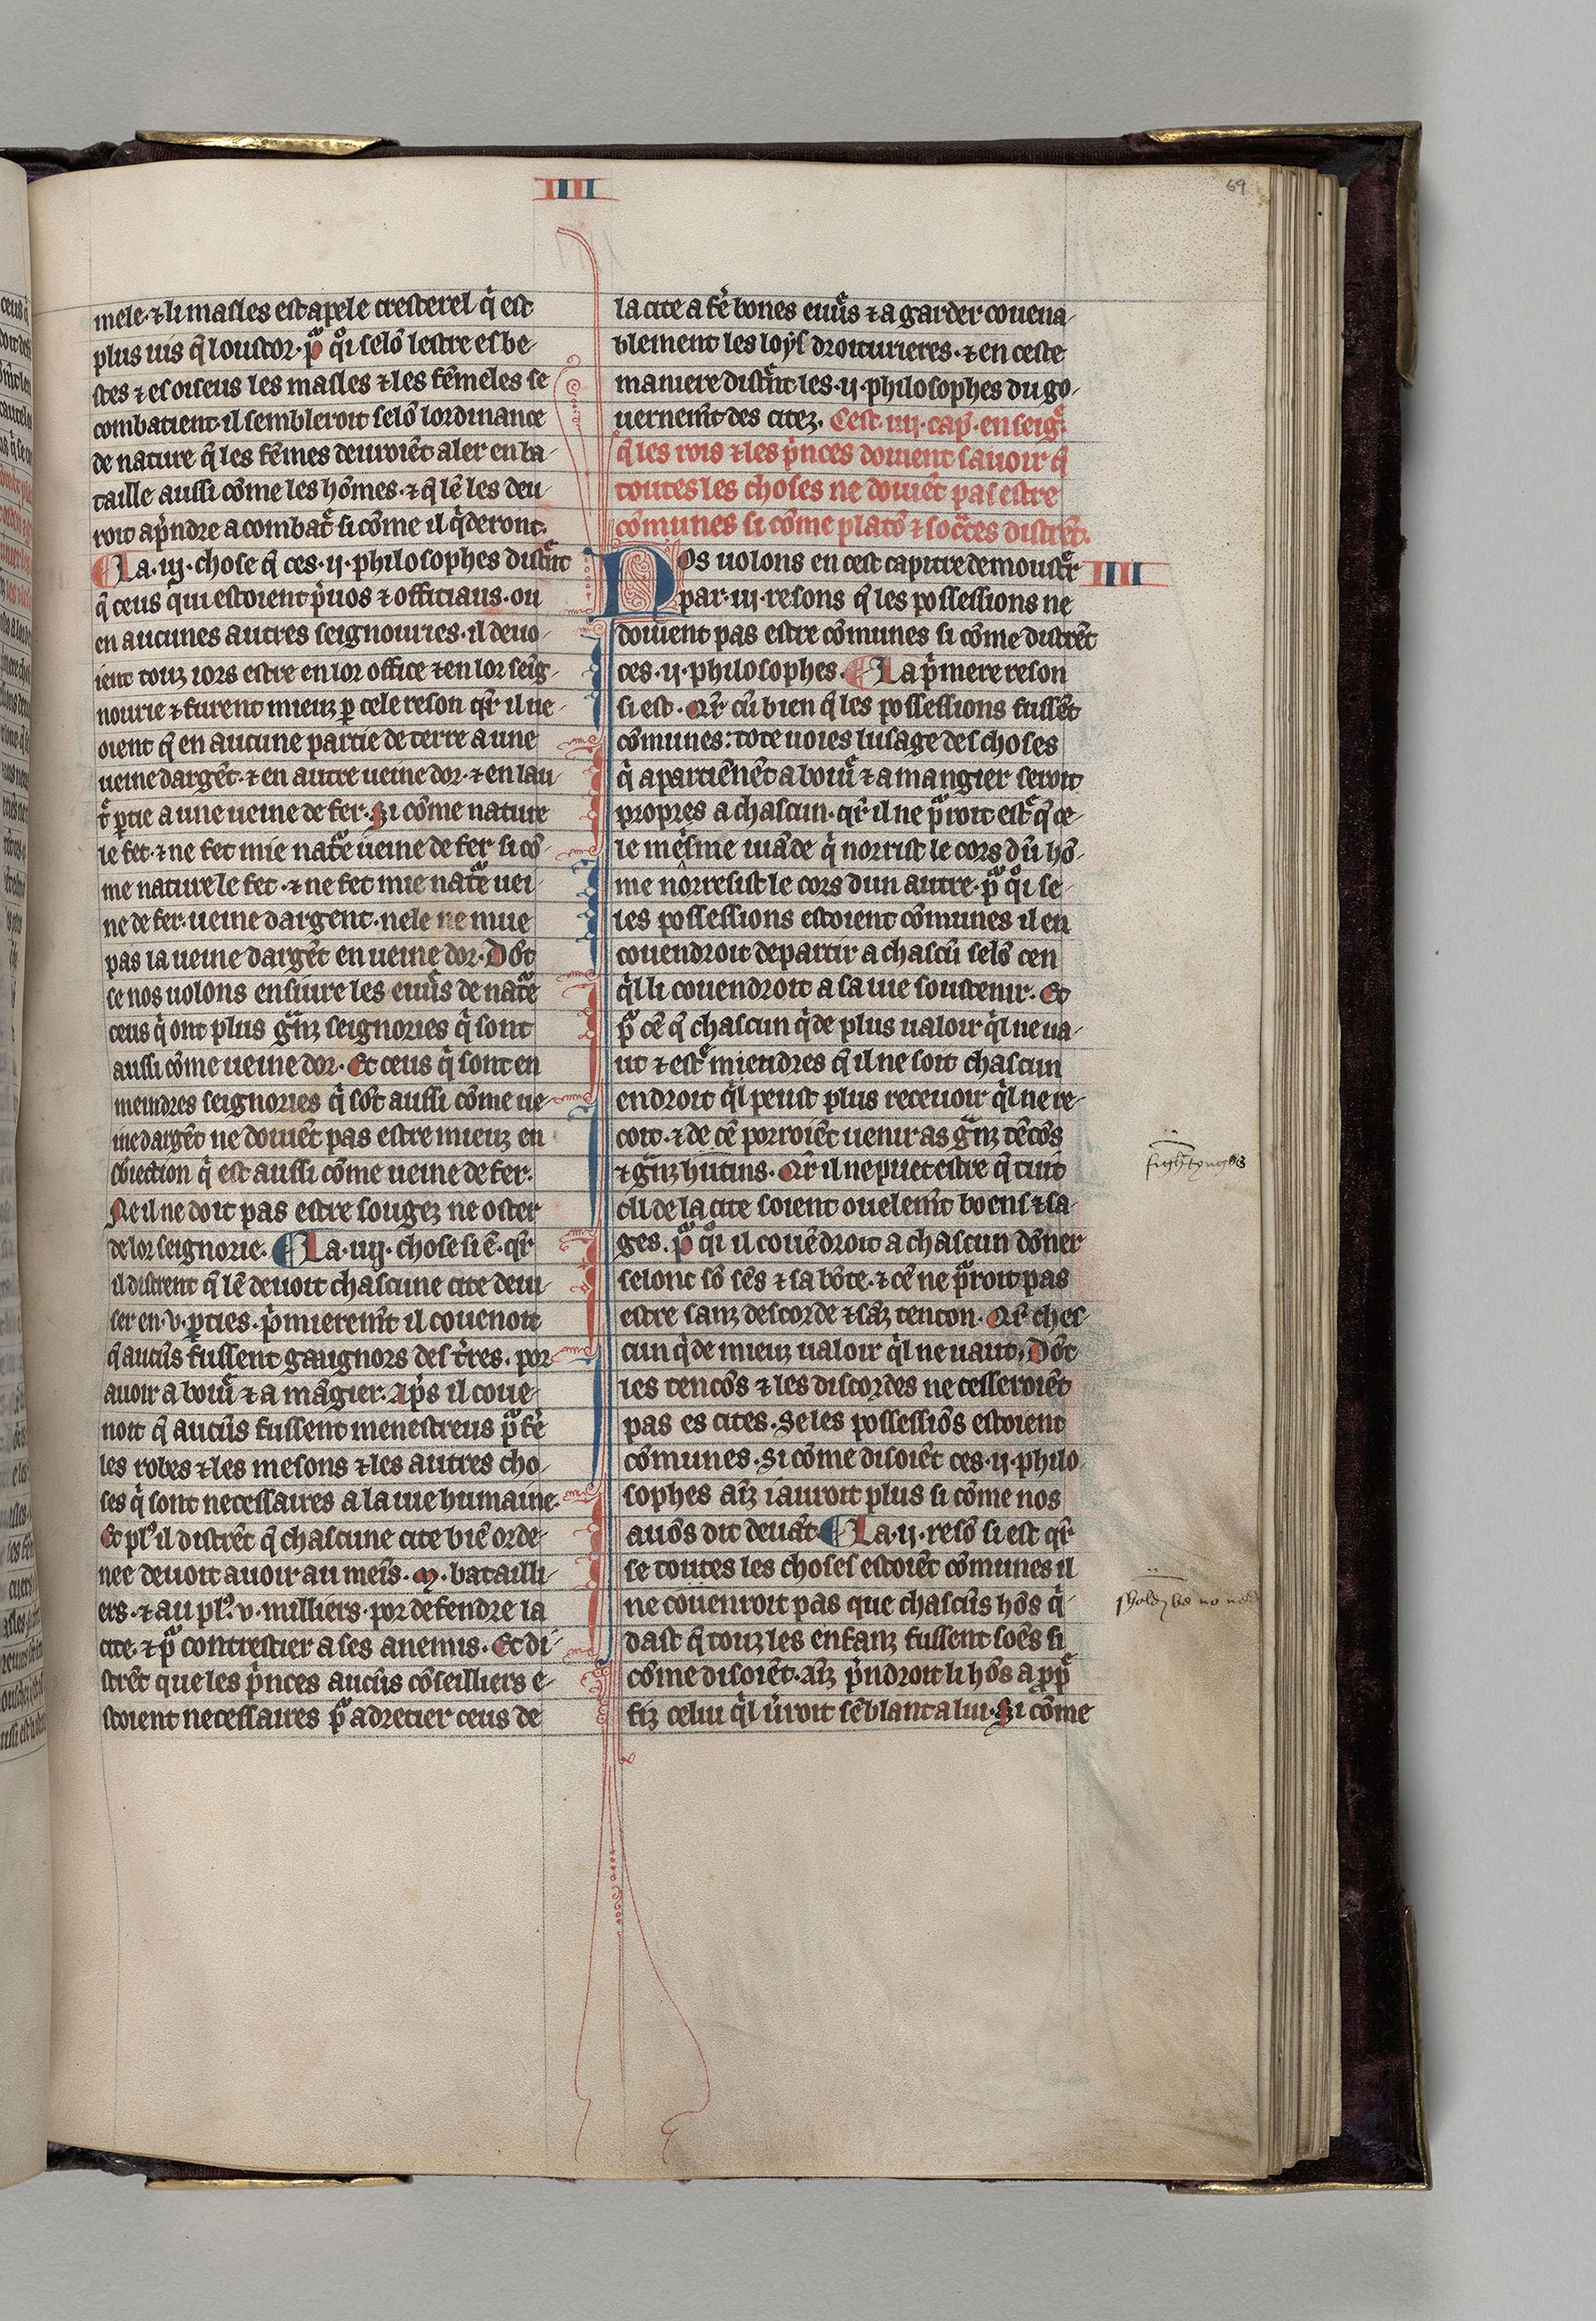 IIII
69
mele. ⁊ li masles est apele tresterel q̇ est
plus vis q̄ loustor. pᷓ qͦi selō lestre es be-
stes ⁊ es oiseus les masles ⁊ les femeles se
combatient. il sembleroit selō lordinance
de nature q̄ les fēmes deuroiēt aler en ba-
taille aussi cōme les hōmes. ⁊ q̄ lē les deu-
roit ap̄ndre a combat̄ si cōme il q̇deront.
La .iij. chose q̄ ces .ij. philosophes distrēt
q̄ ceus qui estoient p̄uos ⁊ officiaus. ou
en aucunes autres seignouries. il deuo-
ient touz iors estre en lor office ⁊ en lor seig-
nourie ⁊ furent mieuz ꝑ cele reson qr̄ il ue-
oient q̄ en aucune partie de terre a une
ueine dargēt. ⁊ en autre ueine dor. ⁊ en lau-
t̄ ꝑtie a une ueine de fer. Si cōme nature
le fet. ⁊ ne fet mie natᷓe ueine de fer si cō-
me nature le fet. ⁊ ne fet mie natᷓe uei-
ne de fer. ueine dargent. nele ne mue
pas la ueine dargēt en ueine dor. Dōt
se nos uolons ensiure les euūs de natᷓe
ceus q̇ ont plus gᷓnz seignories q̇ sont
aussi cōme ueine dor. Et ceus q̇ sont en
meindres seignories q̇ sōt aussi cōme ue-
ine dargēt ne doiuēt pas estre mieuz en
sbiection q̇ est aussi cōme ueine de fer.
Ne il ne doit pas estre sougez ne oster
de lor seignorie. La .iiij. chose si ē. qr̄
il distrent q̄ lē deuoit chascune cite deui-
ser en .v. ꝑties. p̄mieremēt il couenoit
q̄ aucūs fussent gaaignors des t̄res. por
auoir a boiū ⁊ a māgier. Ap̄s il coue-
noit q̄ aucūs fussent menestreus pᷓ fē
les robes ⁊ les mesons ⁊ les autres cho-
ses q̇ sont necessaires a la uie humaine.
Et plꝰ il distrēt q̄ chascune cite biē orde-
nee deuoit auoir au meīs. M. batailli-
ers. ⁊ au plꝰ. v. milliers. por defendre la
cite. ⁊ pᷓ contrestier a ses anemis. Et di-
strēt que les p̄nces aucūs cōseilliers e-
stoient necessaires pᷓ adrecier ceus de
la cite a fē bones euūs ⁊ a garder couena-
blement les loys droiturieres. ⁊ en ceste
maniere distrēt les .ij. philosophes du go-
uernemēt des citez. Cest .iiij. cap̄. enseiḡ
q̄ les rois ⁊ les p̄nces doiuent sauoir q̄
toutes les choses ne doiuēt pas estre
cōmunes si cōme platō ⁊ socᷓtes distrēt.
Nos uolons en cest capitre demoustr̄
IIII
par .iij. resons q̄ les possessions ne
doiuent pas estre cōmunes si cōme distrēt
ces .ij. philosophes. La p̄mere reson
si est. Qr̄ cū bien q̄ les possessions fussēt
cōmunes: tote uoies lusage des choses
q̇ apartiēnēt a boiū ⁊ a mangier seroit
propres a chascun. qr̄ il ne pᷓroit est̄ q̄ ce-
le mēsme uiāde q̇ norrist le cors dū hō-
me nōrresist le cors dun autre. pᷓ qͦi se
les possessions estoient cōmunes il en
couendroit departir a chascū selō cen
q̇l li couendroit a sa uie soustenir. Et
pᷓ cē q̄ chascun q̇de plus ualoir q̇l ne ua-
ut ⁊ est̄ miendres q̄ il ne soit chascun
endroit q̇l peust plus receuoir q̇l ne re-
coit. ⁊ de cē porroiēt uenir as gᷓnz tēcōs
⁊ gᷓnz hutins. Qr̄ il ne puet estre q̄ tuit
cil de la cite soient ouelemēt boens ⁊ sa-
ges. pᷓ qͦi il couēdroit a chascun dōner
selonc sō sēs ⁊ sa bōte. ⁊ cē ne pᷓroit pas
estre sanz descorde ⁊ sāz tencon. Qr̄ ches-
cun q̇de mieuz ualoir q̇l ne uaut. Dōt
les tencōs ⁊ les discordes ne cesseroiēt
pas es cites. Se les possessiōs estoient
cōmunes. Si cōme disoiēt ces .ij. philo-
sophes aīz i auroit plus si cōme nos
auōs dit deuāt. La .ij. resō si est qr̄
se toutes les choses estoiēt cōmunes il
ne couenroit pas que chascūs hōs q̇-
dast q̄ touz les enfanz fussent soēs si
cōme disoiēt. aīz p̄ndroit li hōs a ꝓp̄
fiz celui q̇l ūroit sēblant a lui. Si cōme
fightynges
sholdy be no